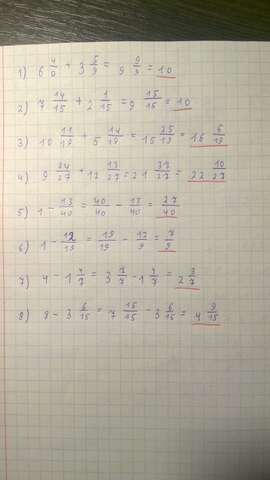 1) 6 4/9 + 3 5/9 = 9 9/9 = 10
2) 7 14/15 + 2 1/15 = 9 15/15 = 10
3) 10 11/19 + 5 14/19 = 15 25/19 = 16 6/19
4) 9 24/27 + 12 13/27 = 21 37/27 = 22 10/27
5) 1 - 13/40 = 40/40 - 13/40 = 27/40
6) 1 - 12/19 = 19/19 - 12/9 = 7/9
7) 4 - 1 4/7 = 3 7/7 - 1 4/7 = 2 3/7
8) 8 - 3 6/15 = 7 15/15 - 3 6/15 = 4 9/15